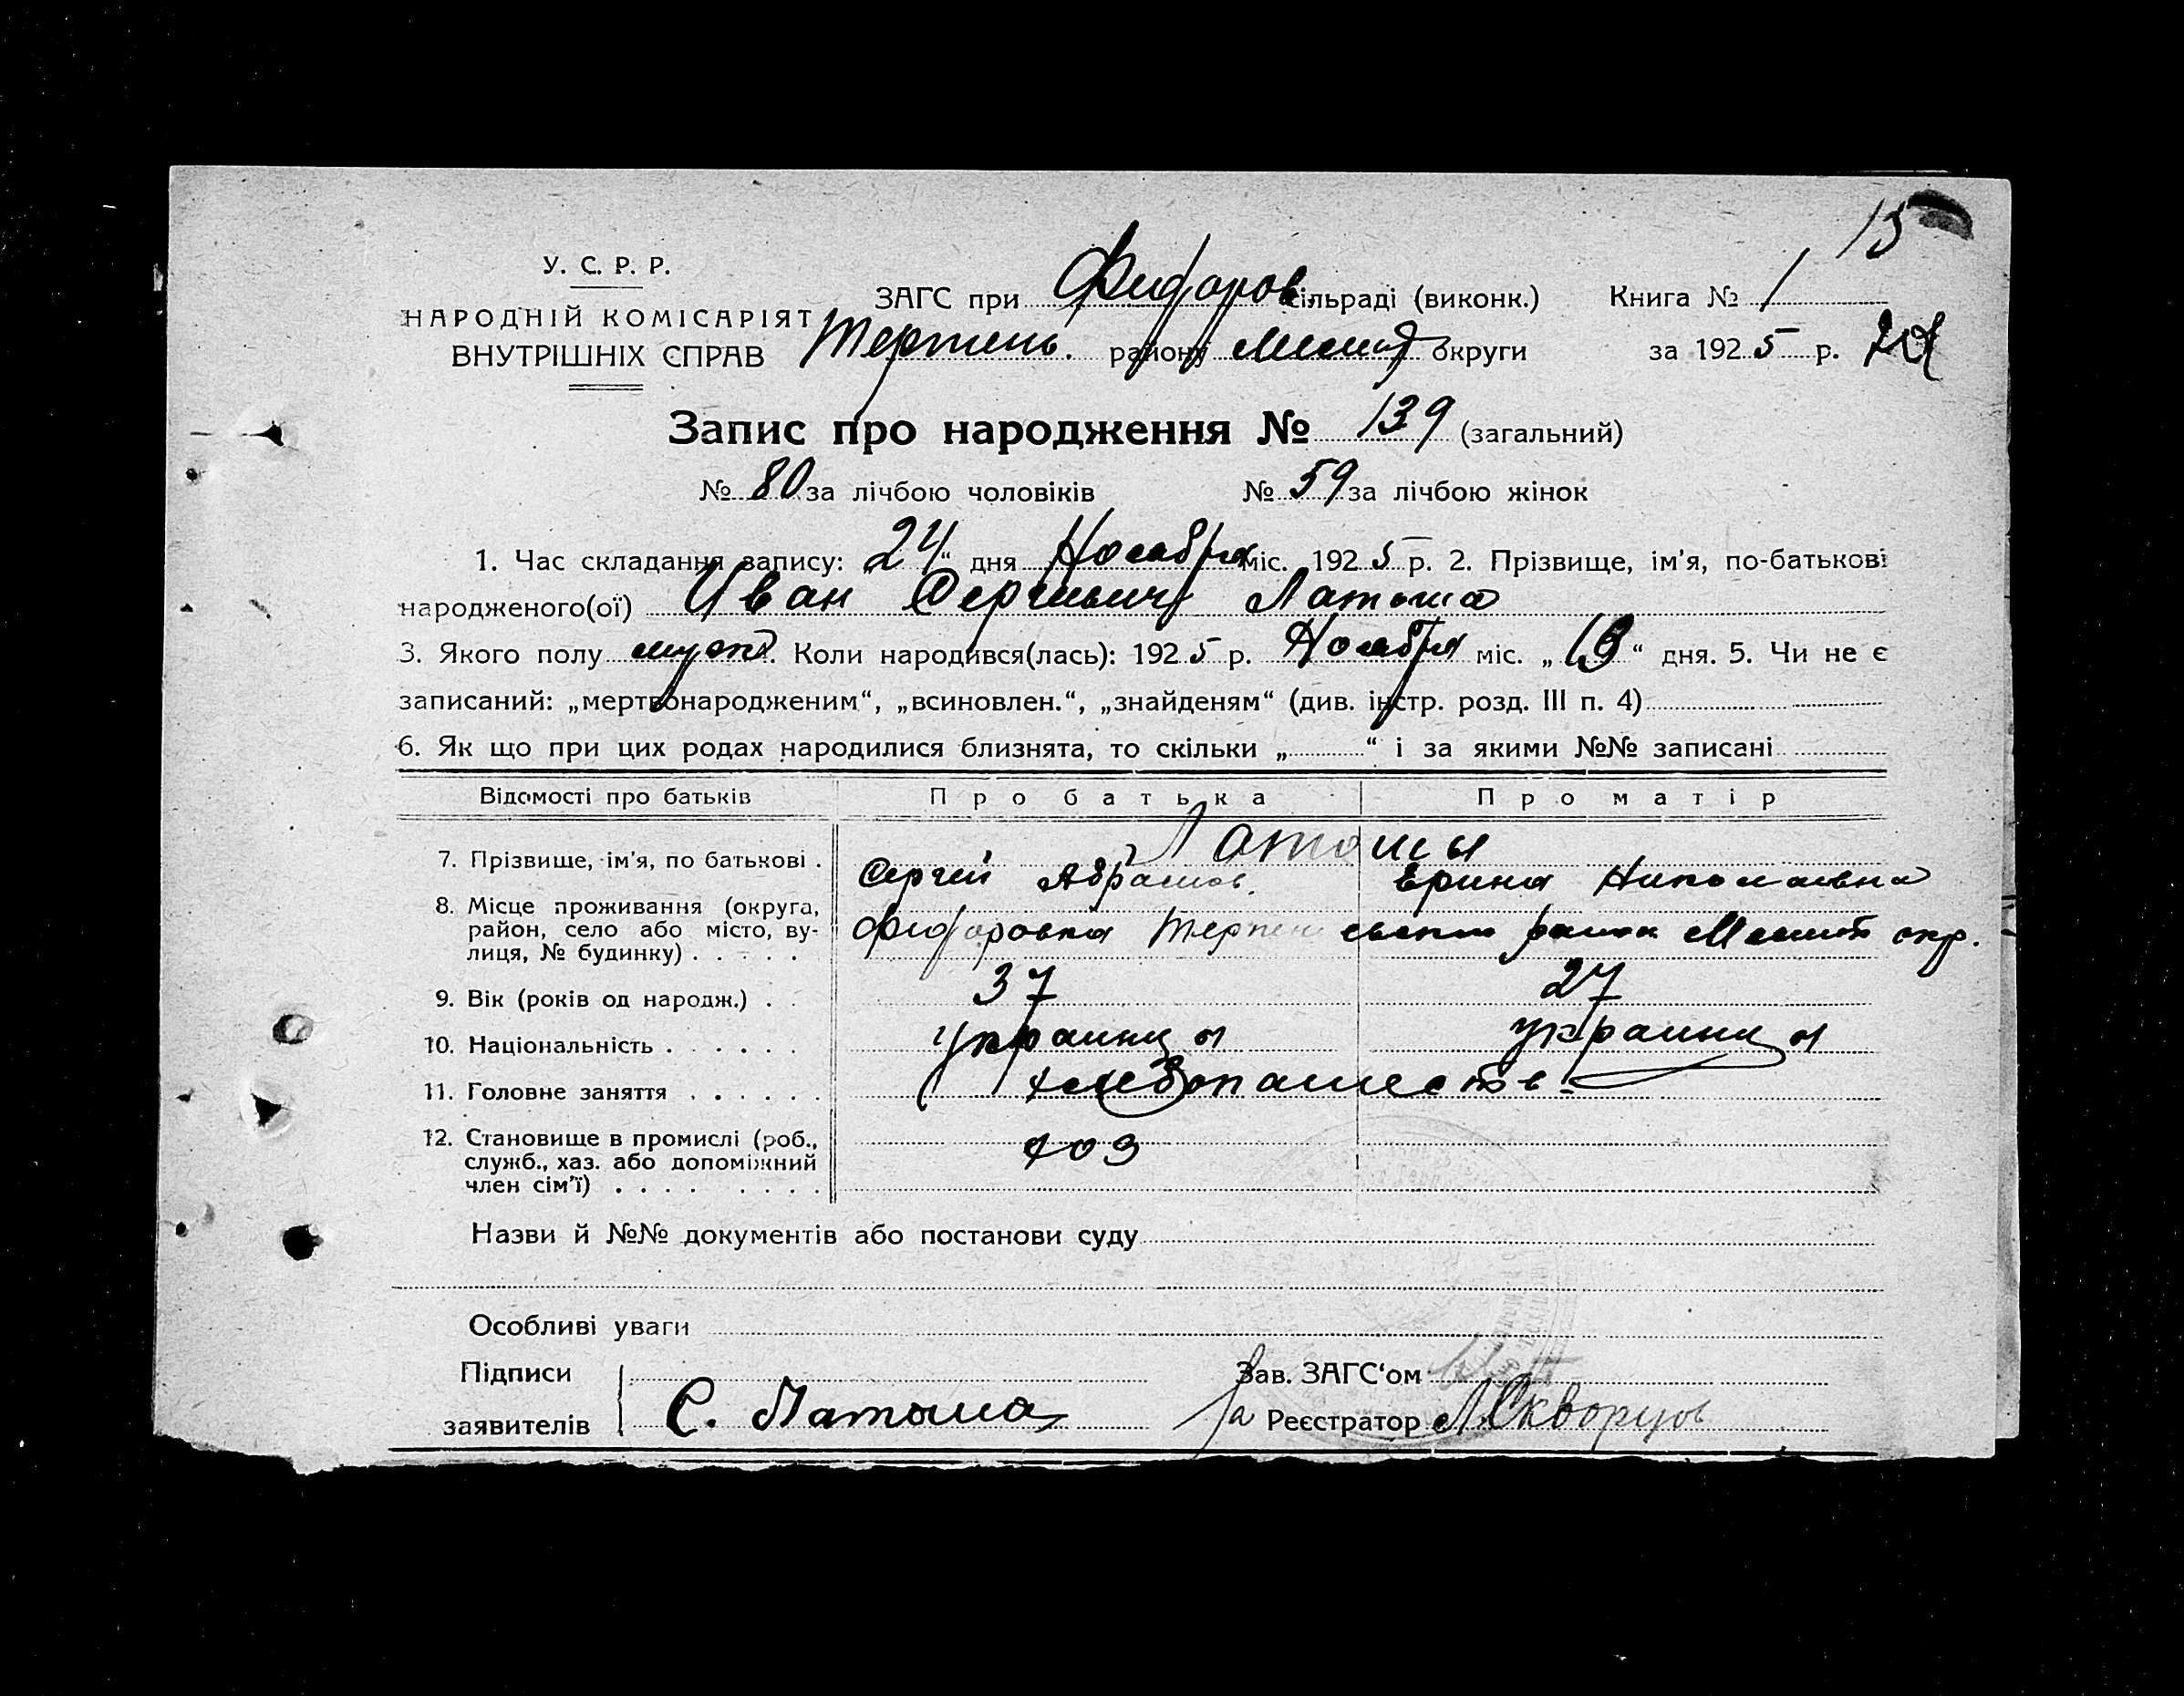 15
У. С. Р. Р.
НАРОДНІЙ КОМІСАРІЯТ
ВНУТРІШНІХ СПРАВ
ЗАГС при Фидоров. сільраді (виконк.) Книга № 1
Терпень. району Мелит округи за 1925 р.
Запис про народження № 139 (загальний)
№ 80 за лічбою чоловіків № 59 за лічбою жінок
1. Час складання запису: „24“ дня Ноября міс. 1925 р. 2. Прізвище, ім'я, по-батькові
народженого(ої) Иван Сергиевич Латоша
3. Якого полу муж. Коли народився(лась): 1925 р. Ноября міс. „19“ дня. 5. Чи не є
записаний: „мертвонародженим“, „всиновлен.“, „знайденям“ (див. інстр. розд. III п. 4)
6. Як що при цих родах народилися близнята, то скільки „ “ і за якими №№ записані
Відомості про батьків Про батька Про матір
Латоши
7. Прізвище, ім'я, по батькові . Сергей Абрамов. Ерина Николаевна
8. Місце проживання (округа,
район, село або місто, ву-
лиця, № будинку) . . . . . Фидоровка Терпеньевского района Мелит окр.
9. Вік (років од народж.) . . 37 27
10. Національність . . . . . . украинцы украинцы
11. Головне заняття . . . . . . хлебопашеств.
12. Становище в промислі (роб.,
служб., хаз. або допоміжний
член сім'ї) . . . . . . . . хоз
Назви й №№ документів або постанови суду
Особливі уваги
Підписи
заявителів С. Латоша
Зав. ЗАГС'ом
За Реєстратор Скворцов